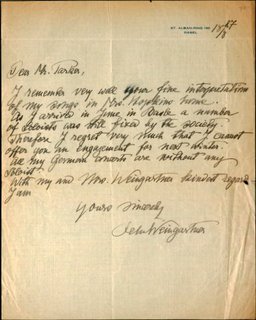 ST. ALBAN-RING 180
BASEL
Dear Mr. Parker,
I remember very well your fine interpretation
of my songs in Mrs. Hopkins home.
As I arrived in June in Basle a number
of soloists was still fixed by the society
Therefore I regret very much that I cannot
offer you an engagement for next winter.
All my German concerts are without any
soloist.
With my and Mrs. Weingartner kindest regards
I am
Yours sincerely
Felix Weingartner